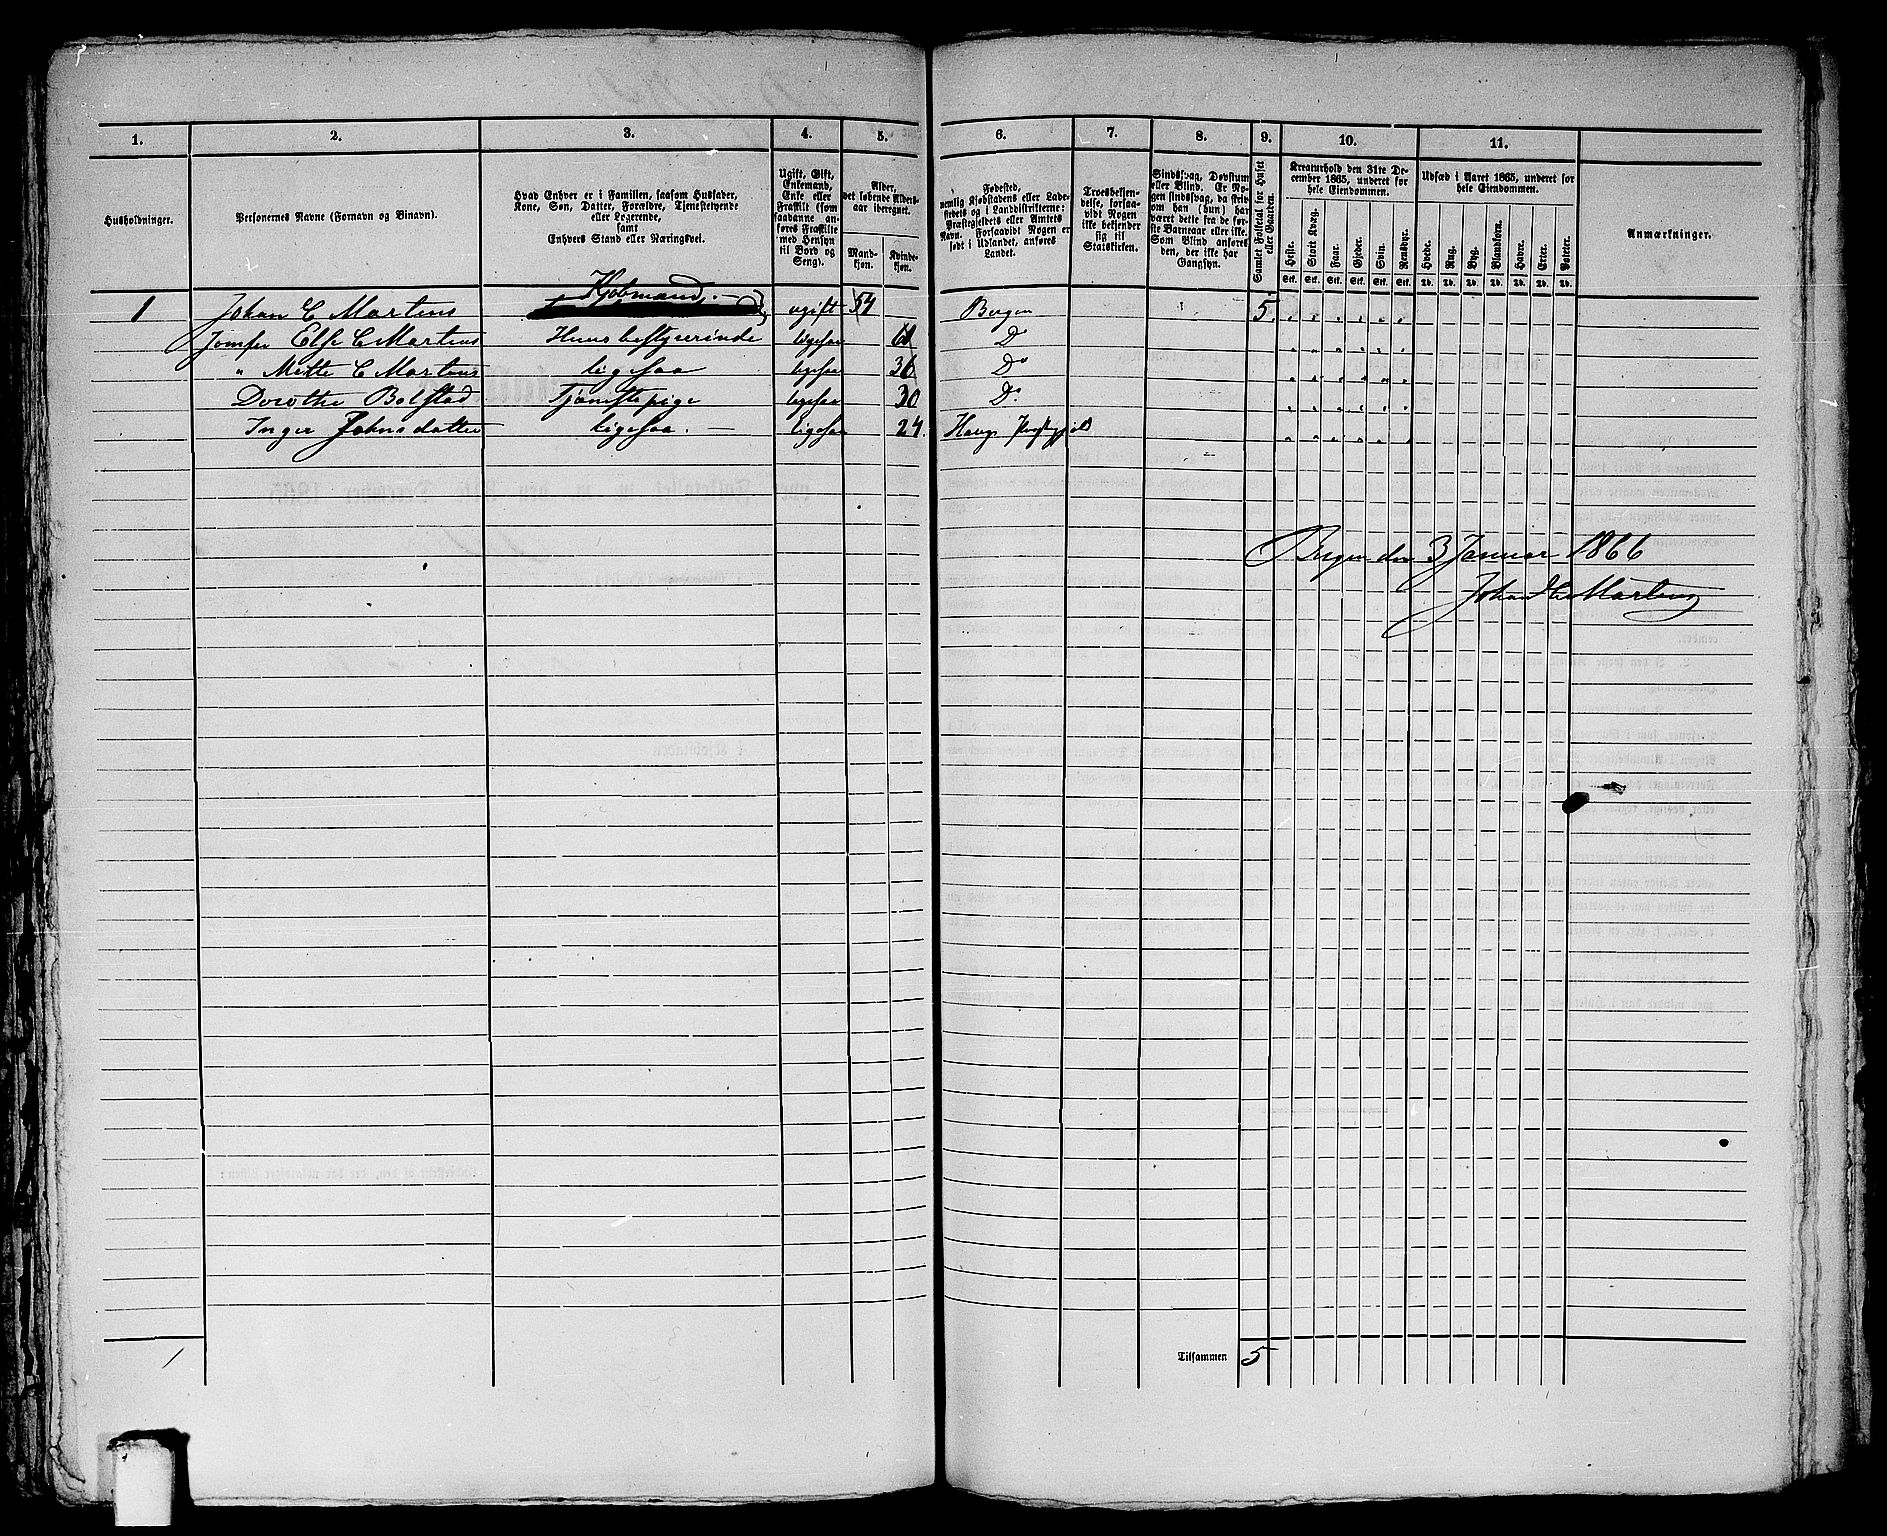 1. 2. 3. 4. 5. 6. 7. 8. 9. 10. 11.
Husholdninger.
Personernes Navne (Fornavn og Binavn).
Hvad Enhver er i Familien, saasom Husfader,
Kone, Søn, Datter, Forældre, Tjenestetyende
eller Logerende,
samt
Enhvers Stand eller Næringsvei.
Ugift, Gift,
Enkemand,
Enke eller
Fraskilt (som
saadanne an-
føres Fraskilte
med Hensyn
til Bord og
Seng).
Alder,
det løbende Alders-
aar iberegnet.
Mand-
kjøn.
Kvinde-
kjøn.
Fødested,
nemlig Kjøbstadens eller Lade-
stedets og i Landdistrikterne:
Præstegjeldets eller Amtets
Navn. Forsaavidt Nogen er
født i Udlandet, anføres
Landet.
Troesbekjen-
delse, forsaa-
vidt Nogen
ikke bekjender
sig til
Statskirken.
Sindssvag, Døvstum
eller Blind. Er No-
gen sindssvag, da skriv
om han (hun) har
været dette fra de før-
ste Barneaar eller ikke.
Som Blind anføres
den, der ikke har
Gangsyn.
Samlet Folketal for Huset
eller Gaarden.
Kreaturhold den 31te De-
cember 1865, underet for
hele Eiendommen.
Heste. Stort Kvæg. Faar. Gjeder. Svin. Rensdyr.
Stk. Stk. Stk. Stk. Stk. Stk.
Udsæd i Aaret 1865, underet for
hele Eiendommen.
Hvede. Rug. Byg. Blandkorn. Havre. Erter. Poteter.
Td. Td. Td. Td. Td. Td. Td.
Anmærkninger.
Kjøbmand. —
1 Johan C Martens ugift 54 Bergen 5.
Jomfru Else C Martens Huusbestyrerinde ligesaa Do
" Mette C Martens ligesaa ligesaa 36 Do
Dorothe Bolstad Tjenestepige ligesaa 30 Do
Inger Johnsdatter ligesaa. — ligesaa 24. Hougs Prstgjeld
Bergen den 3 Januar 1866
Martens
Tilsammen 5